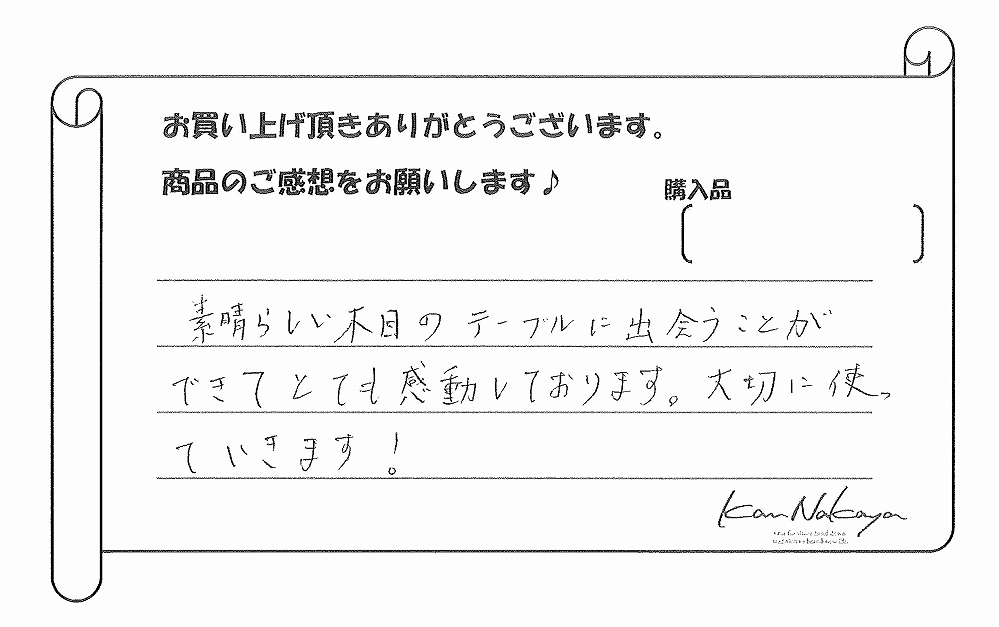 お買い上げ頂きありがとうございます。
商品のご感想をお願いします♪
購入品
素晴らしい木目のテーブルに出会うことが
できてとても感動しております。大切に使っ
ていきます！
Kan Nakaya